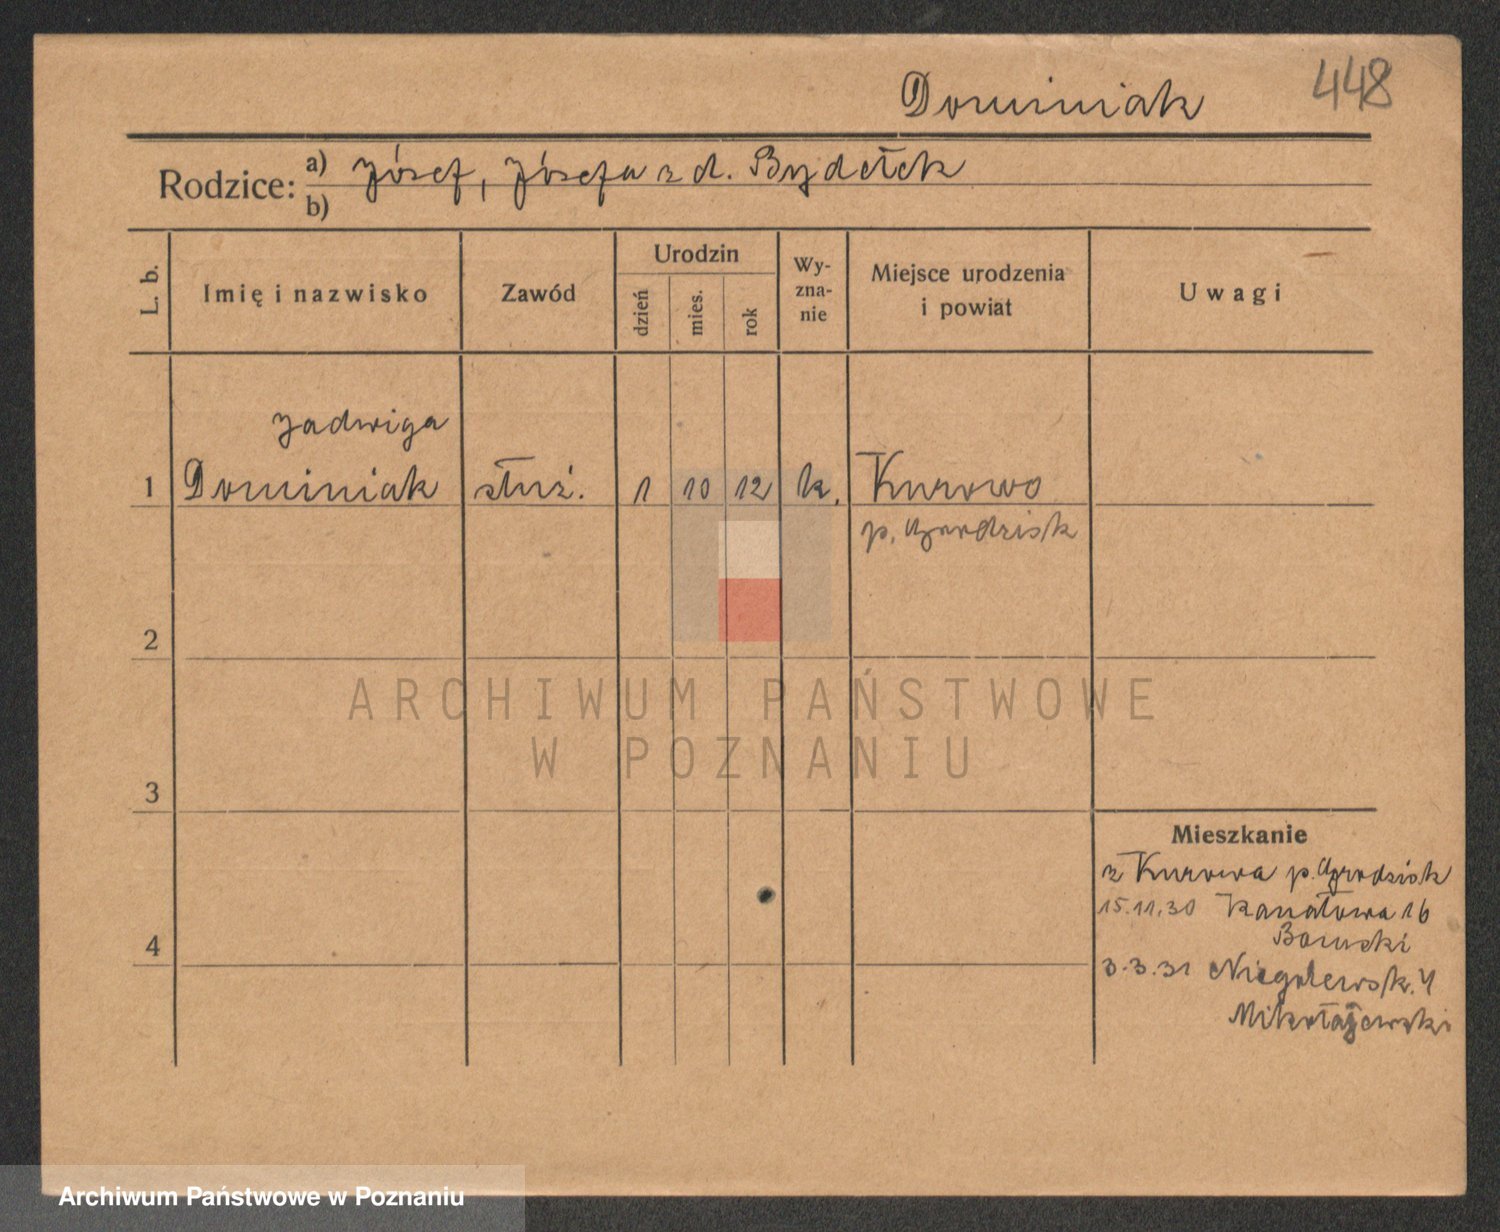 448
Dominiak
Rodzice: a) Józef, Józefa z d. Bydełek
b)
L. b.
Imię i nazwisko
Zawód
Urodzin
dzień
mies.
rok
Wy-
zna-
nie
Miejsce urodzenia
i powiat
Uwagi
Jadwiga
1 Dominiak służ. 1 10 12 k. Kurowo
p. Grodzisk
2
ARCHIWUM PAŃSTWOWE
W POZNANIU
3
Mieszkanie
z Kurowa p. Grodzisk
15.11.30 Kanałowa 16
4
3.3.31 Niegolewsk. 4
Mikołajewski
Archiwum Państwowe w Poznaniu